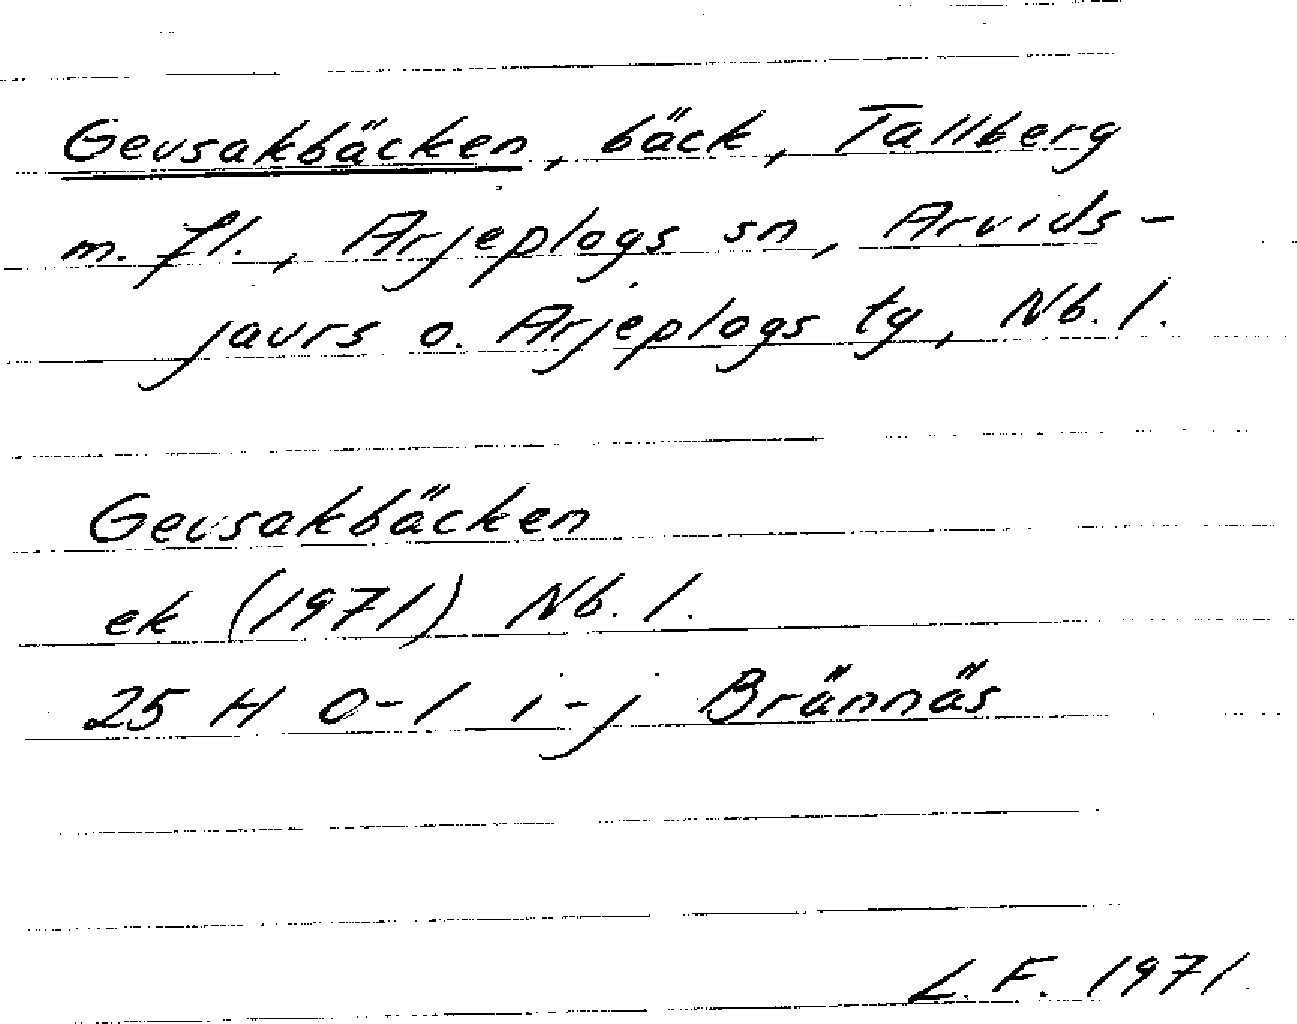 Gevsakbäcken, bäck, Tallberg
m. fl., Arjeplogs sn, Arvids-
jaurs o. Arjeplogs tg, Nb. l.
Gevsakbäcken
ek (1971) Nb. l.
25 H 0-1 i-j Brännäs
L. F. 1971